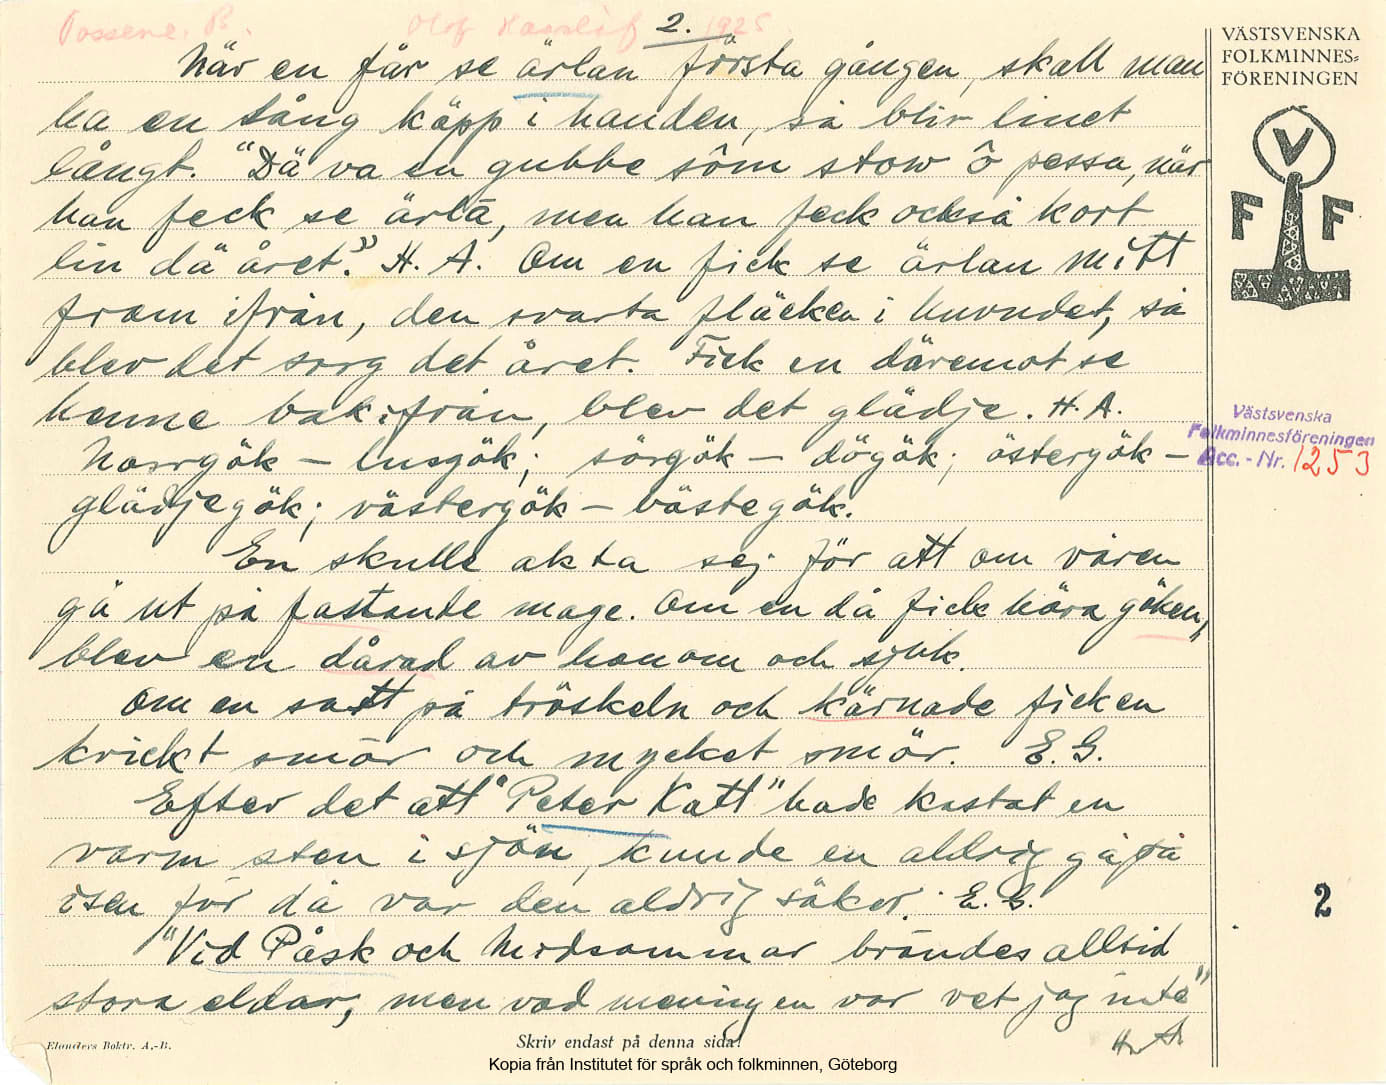 Tossene, B. Olof Hasslöf 1925
2.
VÄSTSVENSKA
FOLKMINNES=
FÖRENINGEN
När en får se ärlan första gången, skall man
ha en lång käpp i handen, så blir linet
långt. "Dä va en gubbe sôm stow ô pessa, när
han feck se ärla, men han feck också kort
lin dä året." H. A. Om en fick se ärlan mitt
fram ifrån, den svarta fläcken i huvudet, så
blev det sorg det året. Fick en däremot se
henne bakifrån, blev det glädje. H. A.
Norrgök – lusgök; sörgök – dögök; östergök –
glädjegök; västergök – bästegök.
En skulle akta sej för att om våren
gå ut på fastande mage. Om en då fick höra göken,
blev en dårad av honom och sjuk.
Om en satt på tröskeln och kärnade fick en
kvickt smör och mycket smör. E. G.
Efter det att "Peter Katt" hade kastat en
varm sten i sjön, kunde en aldrig gå på
isen för då var den aldrig säker. E. G.
"Vid Påsk och Midsommar brändes alltid
stora eldar, men vad meningen var vet jag inte"
H. A.
V
F F
Västsvenska
Folkminnesföreningen
Acc. - Nr. 1253
2
Elanders Boktr. A.-B.
Skriv endast på denna sida!
Kopia från Institutet för språk och folkminnen, Göteborg